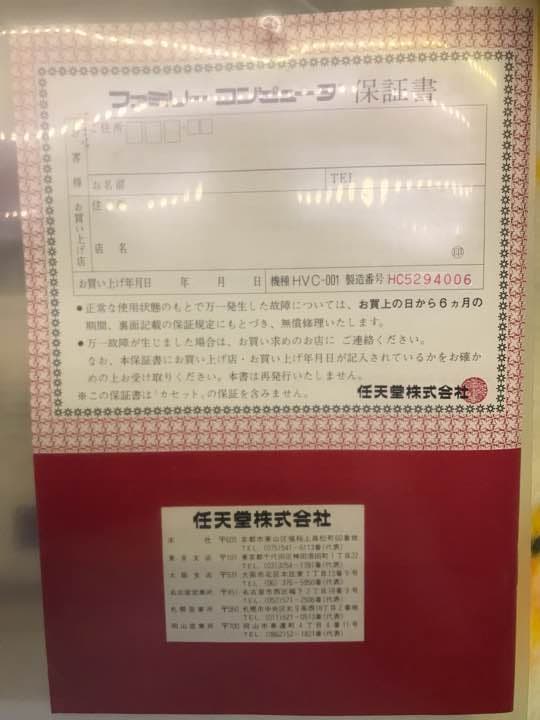 ファミリーコンピュータ 保証書
ご住所
お名前
TEL
様
お買い上げ店
住
店 名
印
お買い上げ年月日 年 月 日 機種 HVC-001 製造番号 HC5294006
●正常な使用状態のもとで万一発生した故障については、お買上の日から6ヵ月の
期間、裏面記載の保証規定にもとづき、無償修理いたします。
●万一故障が生じました場合は、お買い求めのお店に ご連絡ください。
なお、本保証書にお買い上げ店・お買い上げ年月日が記入されているかをお確か
めの上お受け取りください。本書は再発行いたしません。
※この保証書は「カセット」の保証を含みません。
任天堂株式会社
任天堂株式会社
本 社 〒605 京都市東山区福稲上高松町60番地
TEL (075)541-6113番(代表)
東京支店 〒101 東京都千代田区神田須田町1丁目22
TEL (03)254-1781番(代表)
大阪支店 〒531 大阪市北区本庄東1丁目13番9号
TEL (06)376-5950番(代表)
名古屋営業所 〒451
TEL (052)571-2506番(代表)
札幌営業所 〒060
TEL (011)621-0513番(代表)
岡山営業所 〒700 岡山市奉還町4丁目4番11号
TEL (0862)52-1821番(代表)